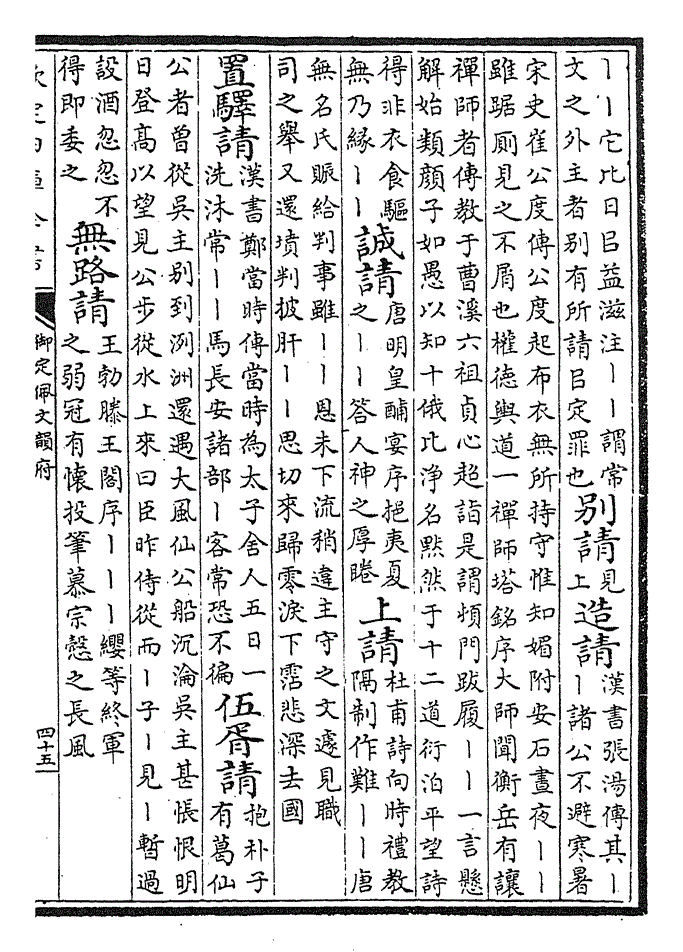 丨丨它比日㠯益滋注丨丨謂常
文之外主者别有所請㠯定罪也
别請
見
上
造請
漢書張湯傳其丨
丨諸公不避寒暑
宋史崔公度傳公度起布衣無所持守惟知媚附安石晝夜丨丨
雖踞厠見之不屑也權德輿道一禪師塔銘序大師聞衡岳有讓
禪師者傳教于曹溪六祖貞心超詣是謂頓門跋履丨丨一言懸
解始類顔子如愚以知十俄比浄名黙然于十二道衍泊平望詩
得非衣食驅
無乃縁丨丨
誠請
唐明皇酺宴序挹夷夏
之丨丨答人神之厚睠
上請
杜甫詩向時禮教
隔制作難丨丨唐
無名氏賑給判事雖丨丨恩未下流稍違主守之文遽見職
司之舉又還墳判披肝丨丨思切來歸零淚下霑悲深去國
置驛請
漢書鄭當時傳當時為太子舍人五日一
洗沐常丨丨馬長安諸部丨客常恐不徧
伍胥請
抱朴子
有葛仙
公者曾從吴主别到洌洲還遇大風仙公船沉淪吴主甚悵恨明
日登髙以望見公步從水上來曰臣昨侍從而丨子丨見丨暫過
設酒忽忽不
得即委之
無路請
王勃滕王閣序丨丨丨纓等終軍
之弱冠有懷投筆慕宗慤之長風
欽定四庫全書
御定佩文韻府
四十五